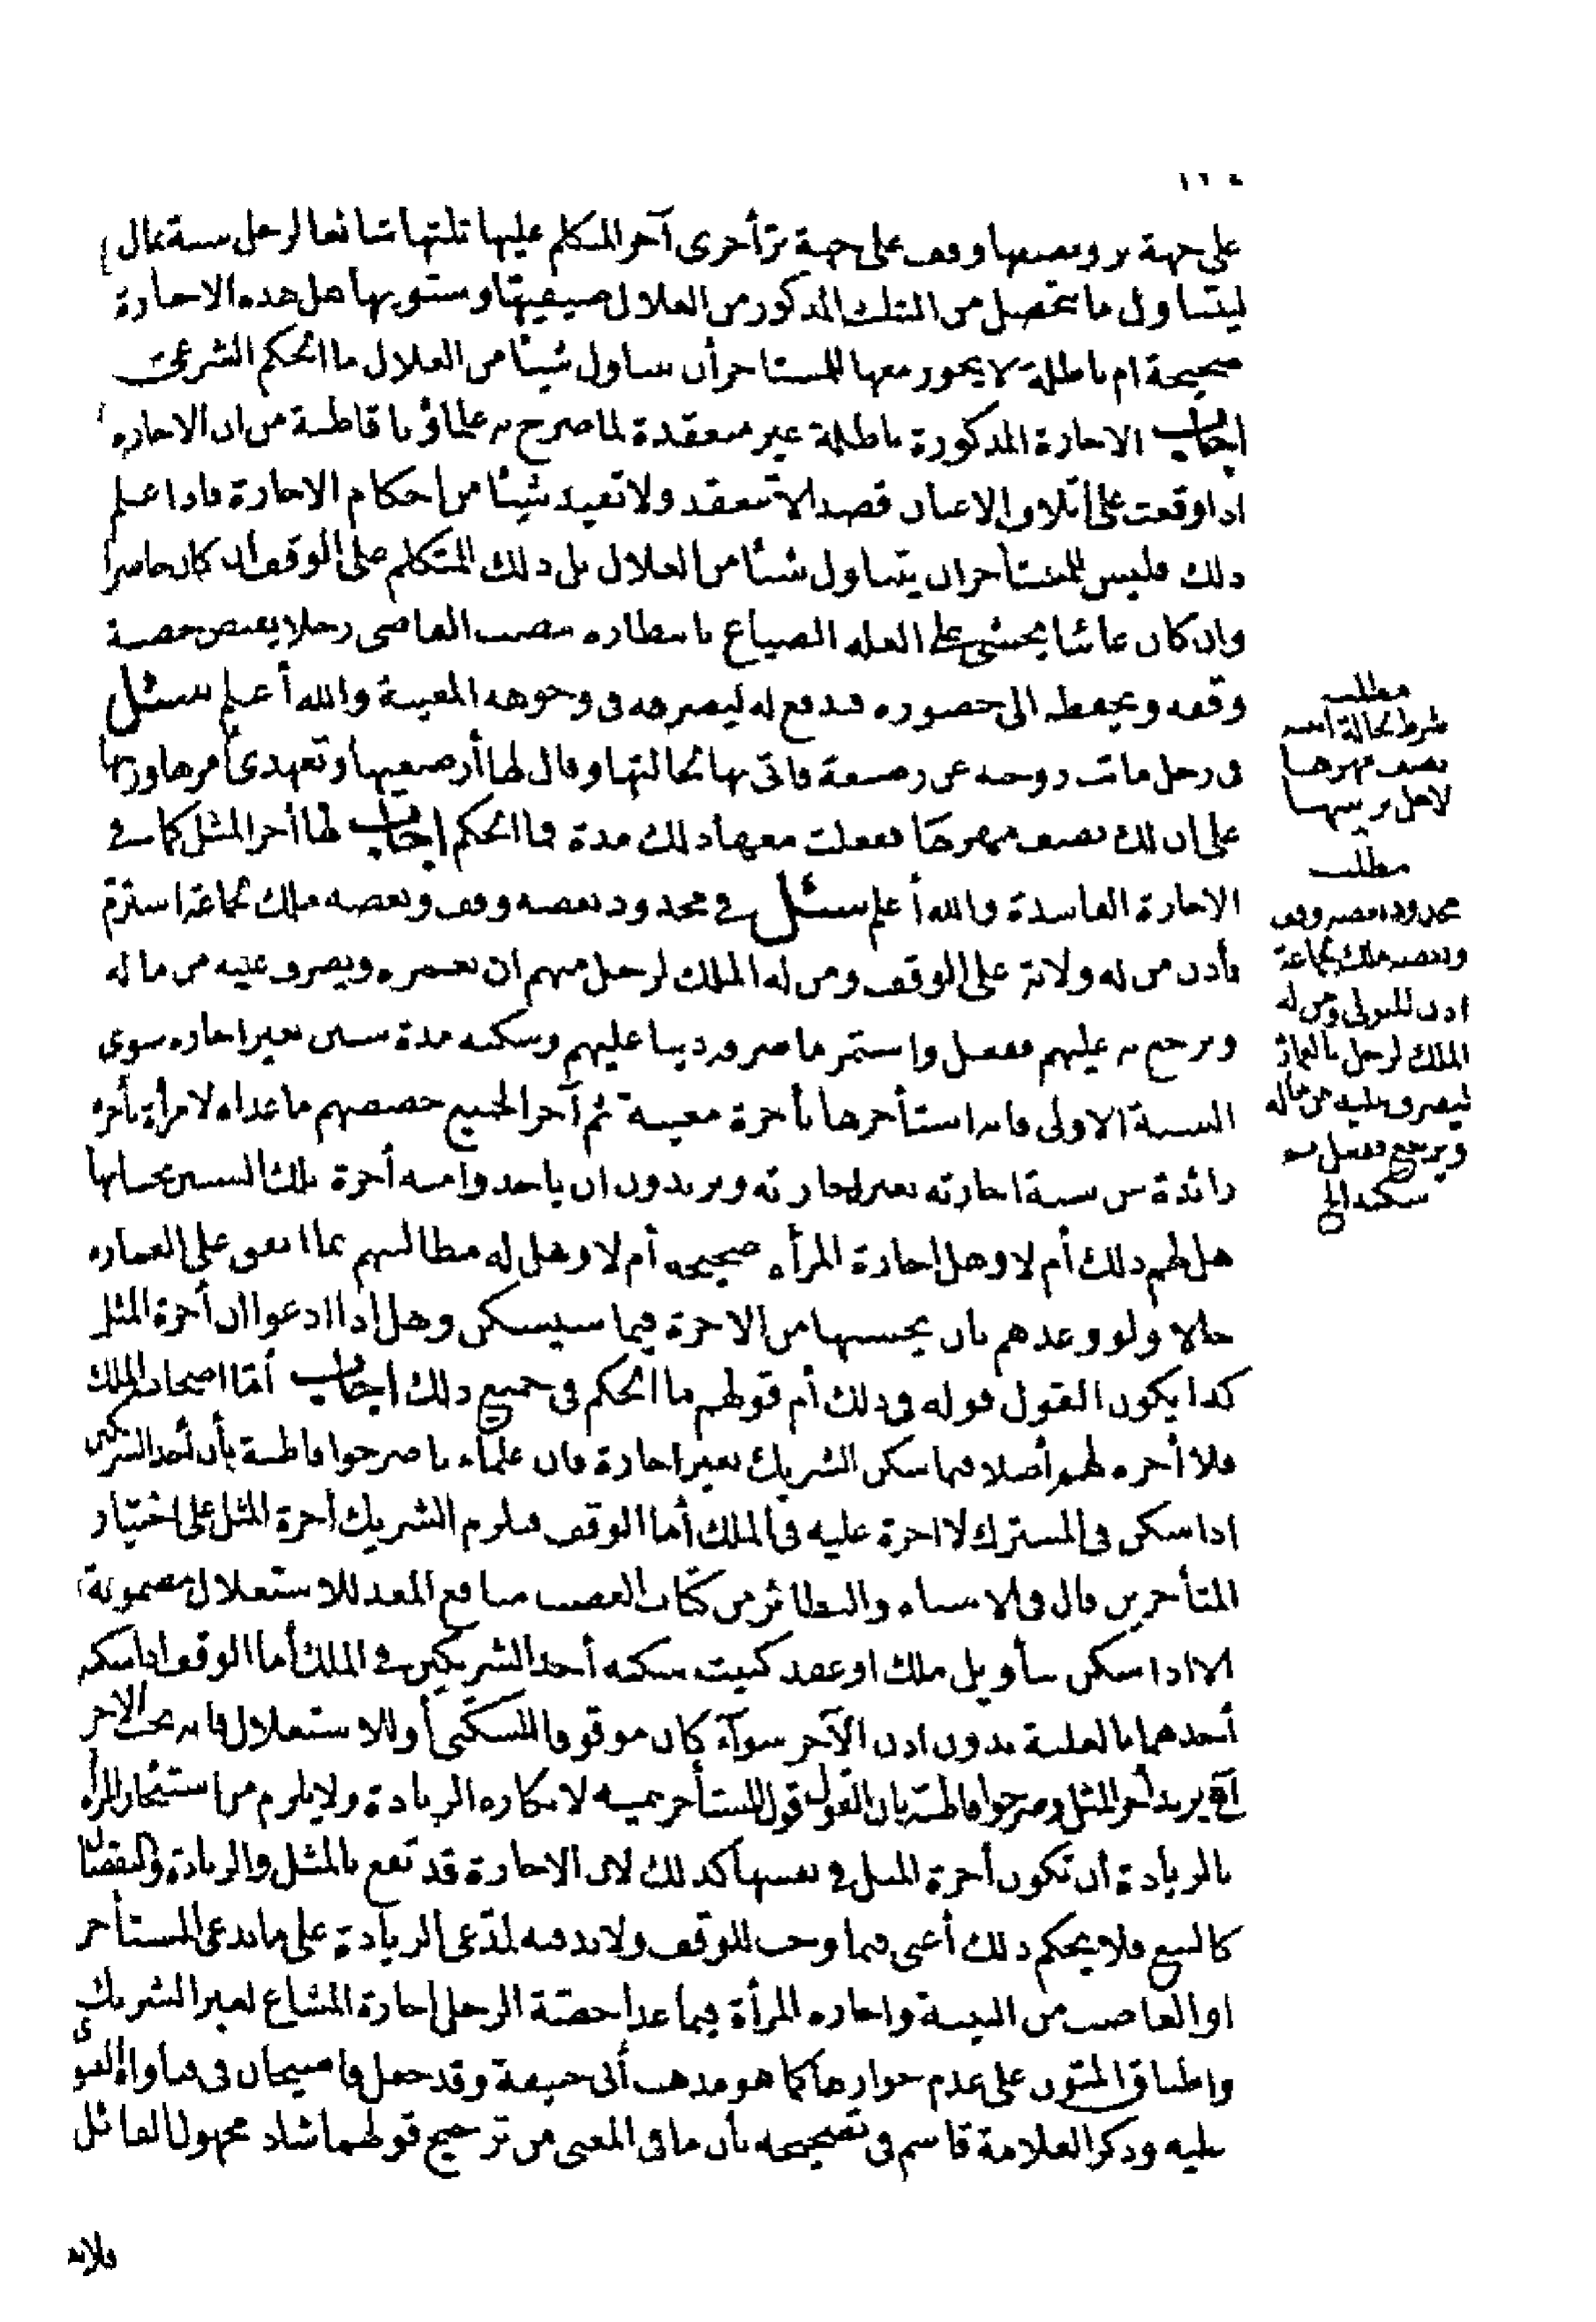 على جهة بر ونصفها وقف على جهة بر أخرى آجر المتكلم عليها ثلثها شائعا لرجل سنة بمال
ليتناول ما يتحصل من الثلث المذكور من الغلال صيفيها وشتويها هل هذه الاجارة
صحيحة ام باطلة لا يجوز معها للمستاجر أن يتناول شيئا من الغلال ما الحكم الشرعي
اجاب الاجارة المذكورة باطلة غير منعقدة لما صرح به علماؤنا قاطبة من ان الاجارة
اذا وقعت على اتلاف الاعيان قصدا لا تنعقد ولا تفيد شيئا من أحكام الاجارة فاذا علم
ذلك فليس للمستأجر ان يتناول شيئا من الغلال بل ذلك للمتكلم على الوقف ان كان حاضرا
وان كان غائبا يخشى على الغلة الضياع بانتظاره ينصب القاضي رجلا يقبض حصة
وقفه ويحفظه الى حضوره فيدفع له ليصرفه في وجوهه المعينة والله أعلم سئل
في رجل ماتت زوجته عن رضيعة فاتى بها لخالتها وقال لها أرضعيها وتعهدي أمرها وربها
على ان لك نصف مهرها ففعلت معها ذلك مدة فما الحكم اجاب لها أجر المثل كما في
الاجارة الفاسدة والله أعلم سئل في محدود بعضه وقف وبعضه ملك لجماعة استرم
فأذن من له ولاية على الوقف ومن له الملك لرجل منهم ان يعمره ويصرف عليه من ماله
ويرجع به عليهم ففعل واستمر ما صرفه دينا عليهم وسكنه مدة سنين بغير اجارة سوى
السنة الاولى فانه استأجرها بأجرة معينة ثم آجر الجميع حصصهم ما عداه لامرأة بأجرة
زائدة عن سنة اجارته بغير اجازته ويريدون ان ياخذوا منه أجرة تلك السنين بحسابها
هل لهم ذلك أم لا وهل اجارة المرأة صحيحة أم لا وهل له مطالبتهم بما انفق على العمارة
حالا ولو وعدهم بان يحسبها من الاجرة فيما سيسكن وهل اذا ادعوا ان أجرة المثل
كذا يكون القول قوله في ذلك أم قولهم ما الحكم في جميع ذلك اجاب أما اصحاب الملك
فلا أجرة لهم أصلا فيما سكن الشريك بغير اجارة فان علماءنا صرحوا قاطبة بأن أحد الشريكين
اذا سكن في المشترك لا اجرة عليه في الملك أما الوقف فيلزم الشريك أجرة المثل على اختيار
المتأخرين قال في الاشباه والنظائر من كتاب الغصب منافع المعد للاستغلال مضمونة
الا اذا سكن بتأويل ملك او عقد كبيت سكنه أحد الشريكين في الملك أما الوقف اذا سكنه
أحدهما بالغلبة بدون اذن الآخر سوآء كان موقوفا للسكنى أو للاستغلال فانه يجب الاجر
أجر المثل وصرحوا قاطبة بان القول قول المستأجر بيمينه لانكاره الزيادة ولا يلزم من استئجار المرأة
بالزيادة أن تكون أجرة المثل في نفسها كذلك لان الاجارة قد تقع بالمثل والزيادة والنقصان
كالبيع فلا يحكم ذلك أعني فيما وجب للوقف ولا بد فيه لمدعي الزيادة على ما يدعي المستأجر
او الغاصب من البينة واجارة المرأة فيما عدا حصة الرجل اجارة المشاع لغير الشريك
واطباق المتون على عدم جوازها كما هو مذهب أبي حنيفة وقد جعل قاضيخان في فتاواه الفتوى
عليه وذكر العلامة قاسم في تصحيحه بأن ما في المغني من ترجيح قولهما شاذ مجهول القائل
فلا يعـ
مطلب
شرط لخالة ابنته
نصف مهرها
لاجل تربيتها
مطلب
محدود بعضه وقف
وبعضه ملك لجماعة
اذن المتولي ومن له
الملك لرجل بالعمارة
ليصرف عليه من ماله
ويرجع ففعل ثم
سكنه الخ